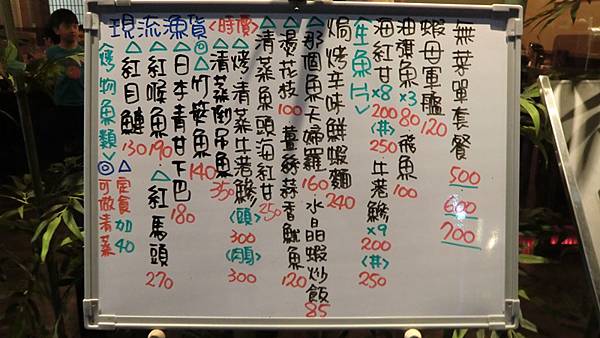 現流漁貨〈時價〉
無菜單套餐 500 600 700
蝦母軍艦 120
油旗魚×3 80 · 飛魚 100
海紅甘×8 200〈丼〉250 · 牛港鰺×9 200〈丼〉250
〈生魚片〉
焗烤辛味鮮蝦麵 240
△那個魚天婦羅 160 水晶蝦炒飯 85
△燙花枝 100 薑絲蒜香魷魚 120
△清蒸魚頭海紅甘 250
△烤·清蒸牛港鰺〈頭〉300〈肉〉300
△清蒸倒吊魚 350
◎△竹筴魚 140
△日本青甘下巴 180
△紅喉魚 190 △紅馬頭 270
△紅目鰱 130
〈烤物魚類〉 ◎△定食加40
可做清蒸